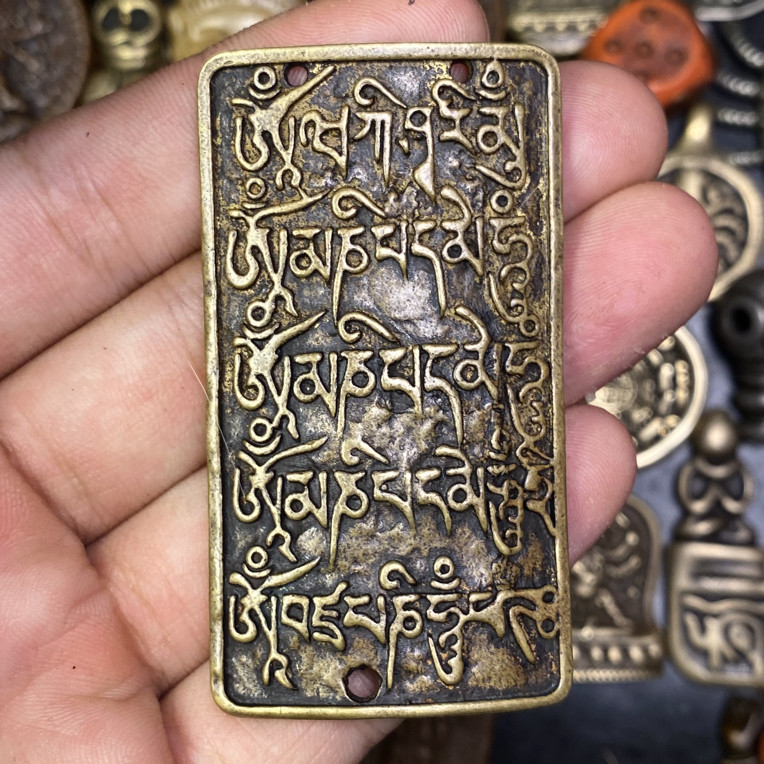 ཨོཾ་ཝ་གི་ཤ་རི་མུཾ
ཨོཾ་མ་ཎི་པད་མེ་ཧཱུཾ
ཨོཾ་མ་ཎི་པད་མེ་ཧཱུཾ
ཨོཾ་མ་ཎི་པད་མེ་ཧཱུཾ
ཨོཾ་བཛྲ་པ་ཎི་ཧཱུཾ་ཕཊ